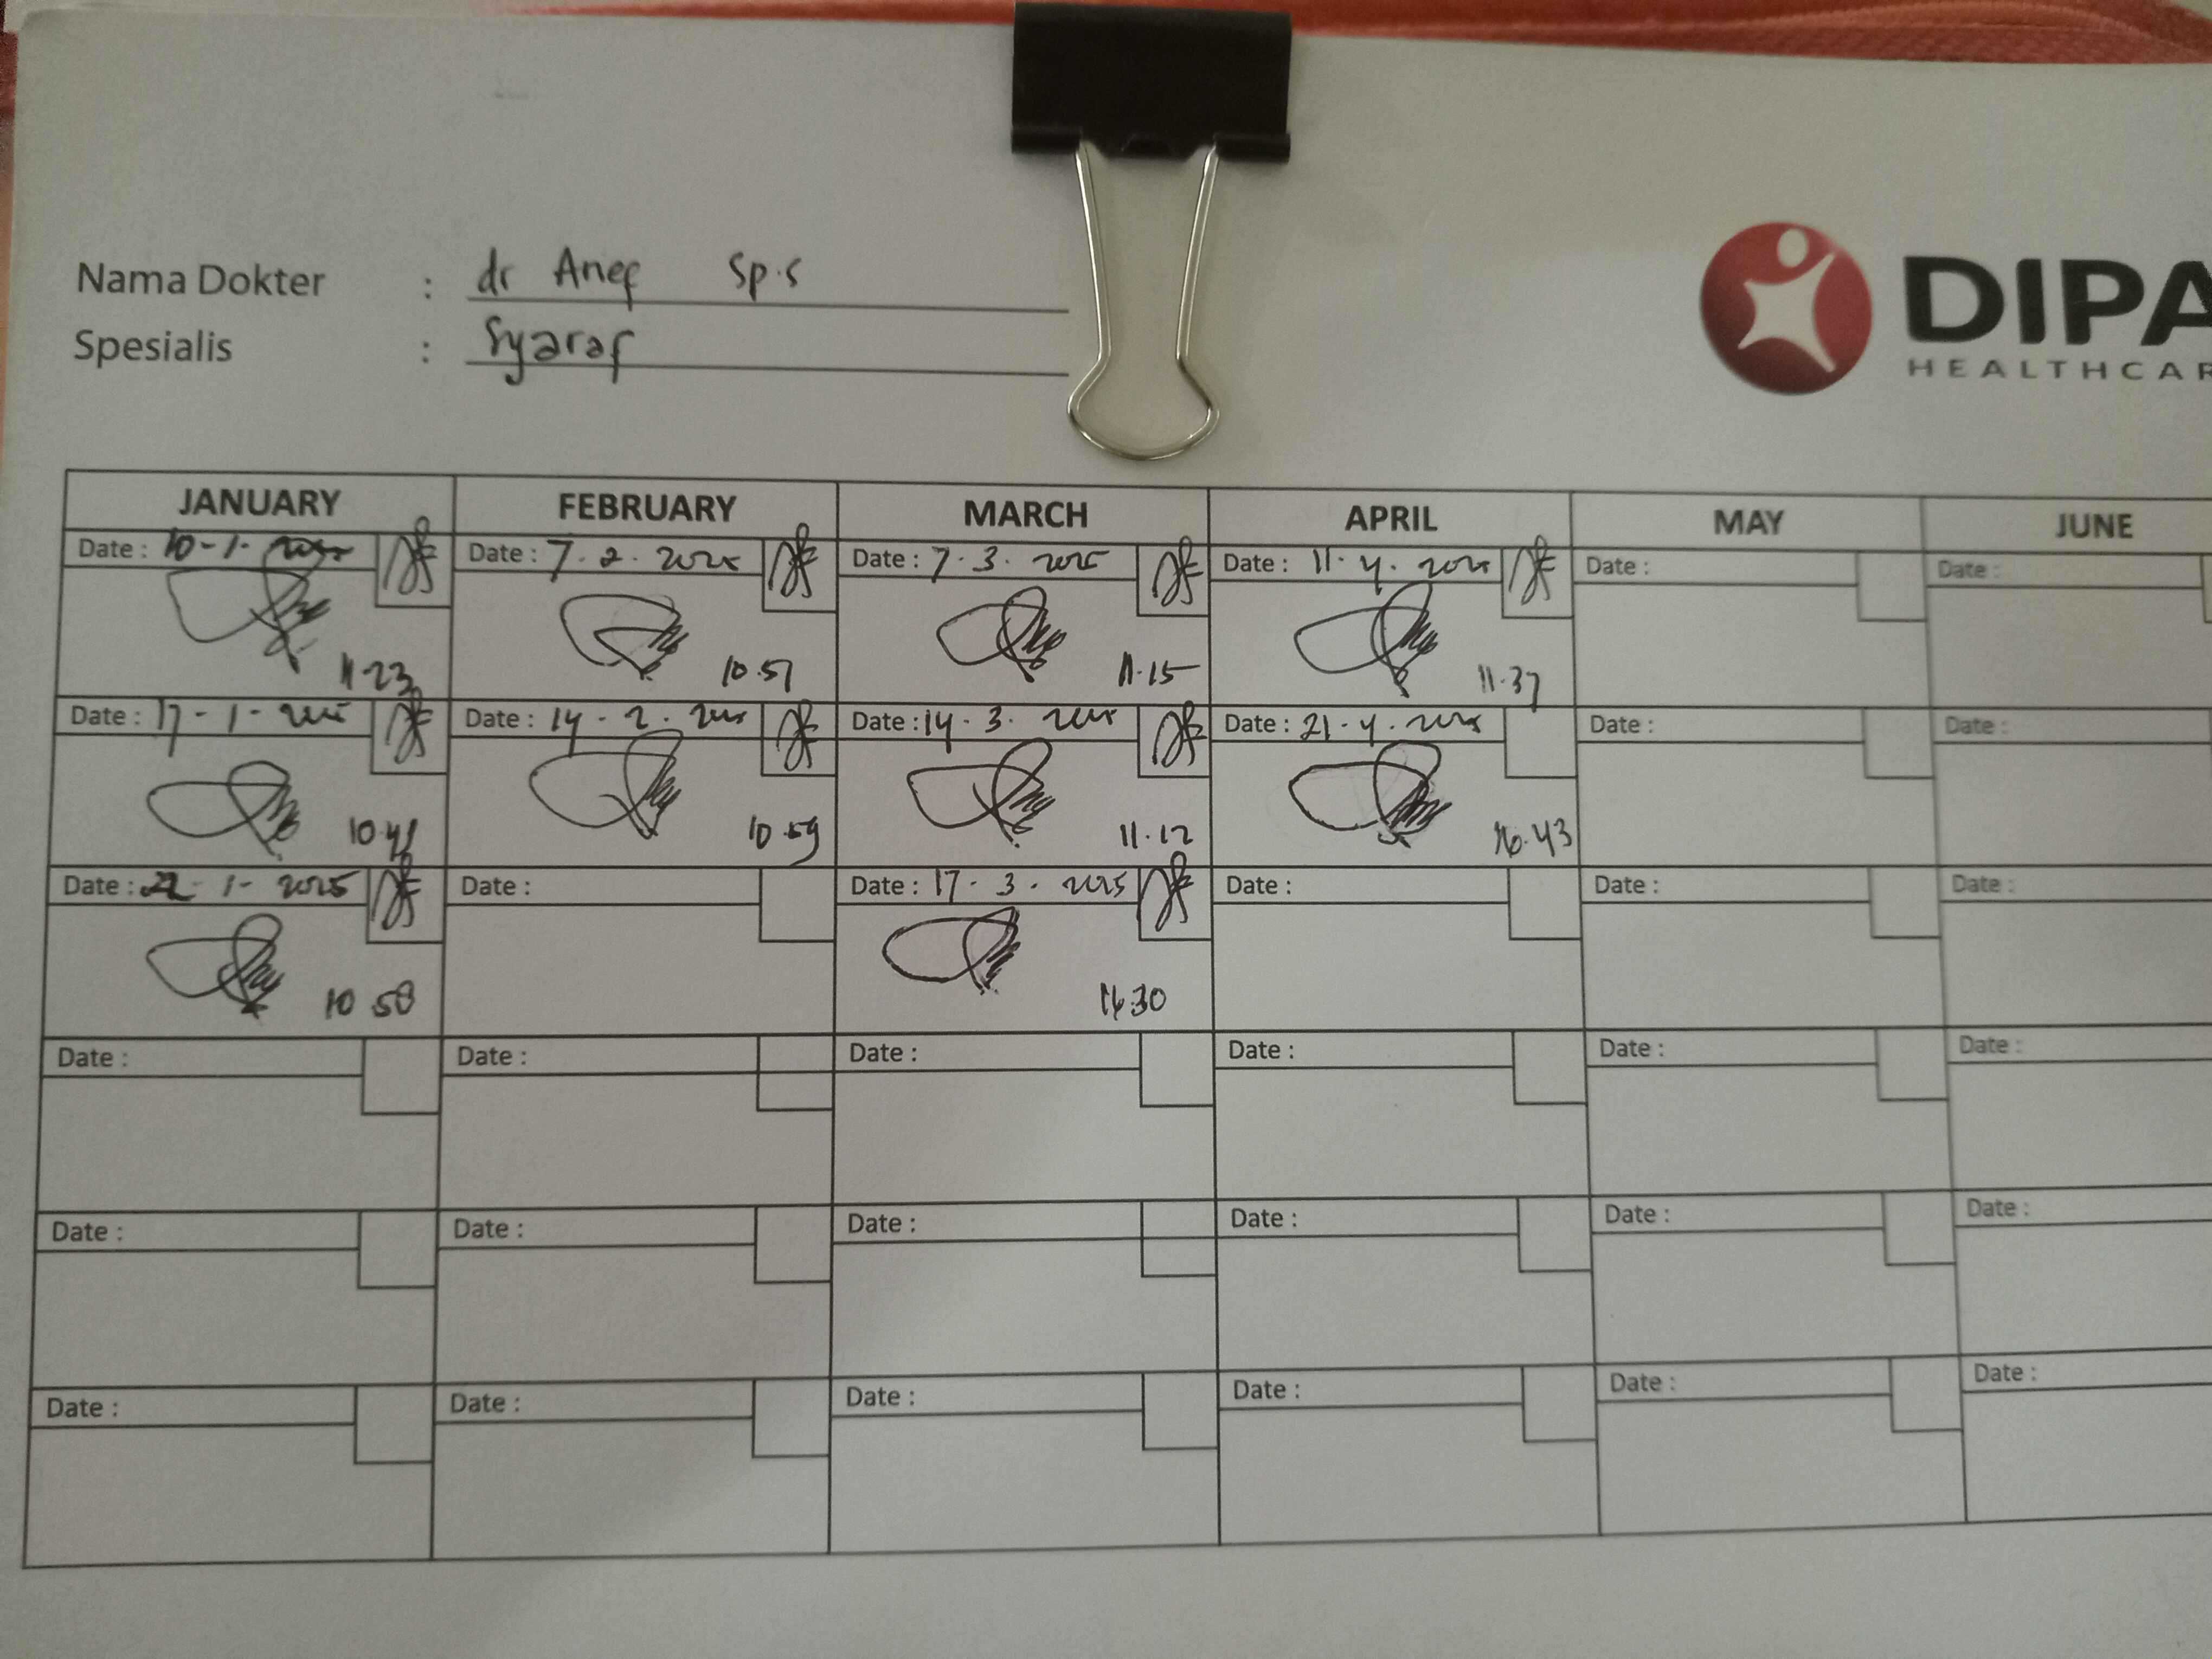 Nama Dokter : dr Anef Sp.S
Spesialis : Syaraf
DIPA
HEALTHCAR
JANUARY FEBRUARY MARCH APRIL MAY JUNE
Date : 10-1- Date : 7.2.2025 Date : 7.3.2025 Date : 11.4.2025 Date : Date :
11.23 10.51 11.15 11.37
Date : 17-1-2025 Date : 14-2.2025 Date : 14-3.2025 Date : 21-4.2025 Date : Date :
10.59 11.12 16.43
Date : -1-2025 Date : Date : 17-3-2025 Date : Date : Date :
10 58 30
Date : Date : Date : Date : Date : Date :
Date : Date : Date : Date : Date : Date :
Date : Date : Date : Date : Date : Date :